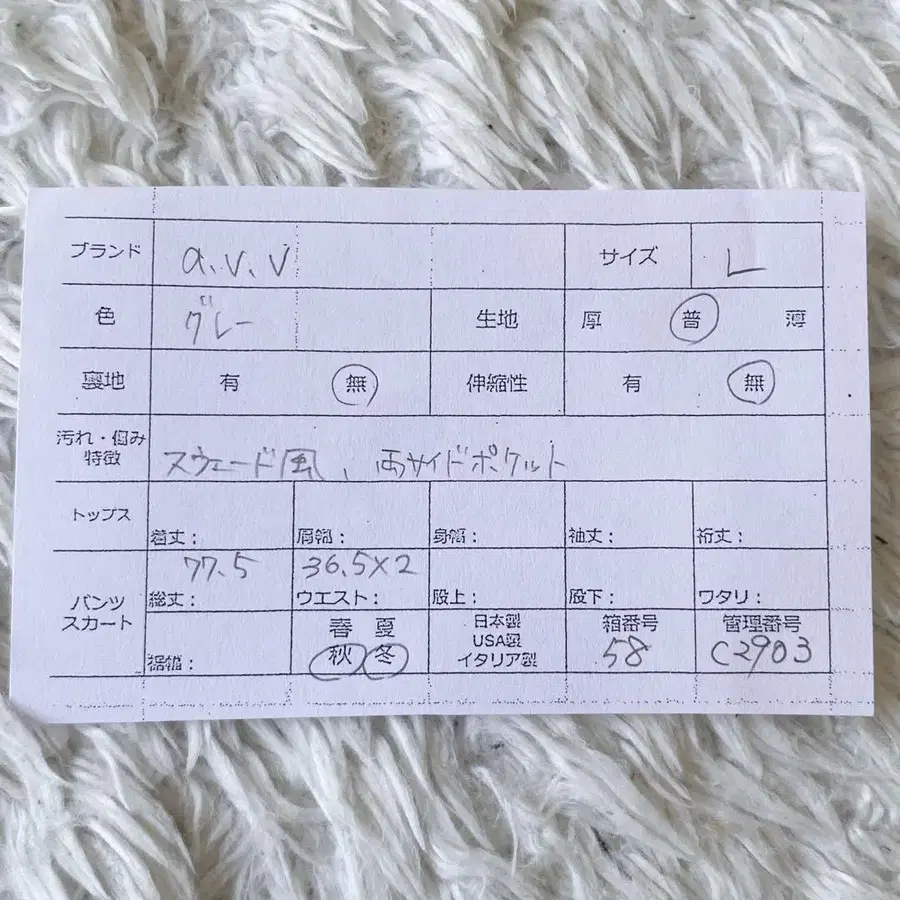 ブランド a.v.v サイズ L
色 グレー 生地 厚 普 薄
裏地 有 無 伸縮性 有 無
汚れ・傷み
特徴 スウェード風、両サイドポケット
トップス 着丈: 肩幅: 身幅: 袖丈: 裄丈:
77.5 36.5×2
パンツ
スカート 総丈: ウエスト: 股上: 股下: ワタリ:
裾幅: 春 夏
秋 冬
日本製
USA製
イタリア製
箱番号
58
管理番号
C2903